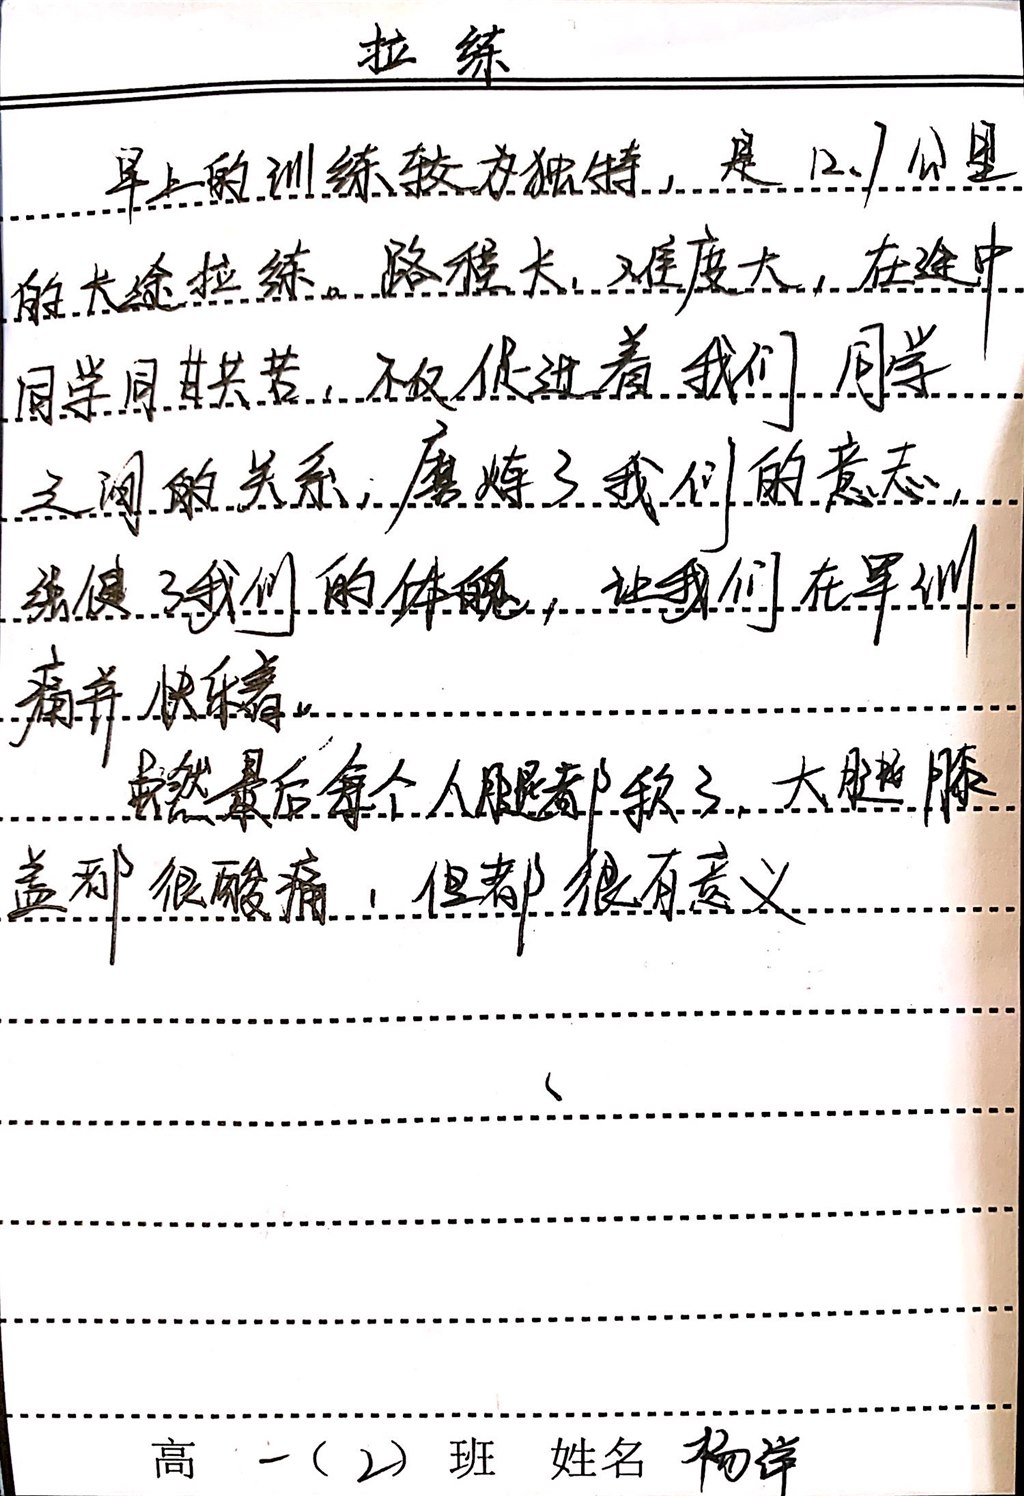 拉练
早上的训练较为独特，是12.1公里
的长途拉练。路程长，难度大，在途中
同学同甘共苦，不仅促进着我们同学
之间的关系，磨炼了我们的意志，
强健了我们的体魄，让我们在军训
痛并快乐着。
虽然最后每个人腿都软了，大腿膝
盖都很酸痛，但都很有意义
高一（2）班 姓名 杨